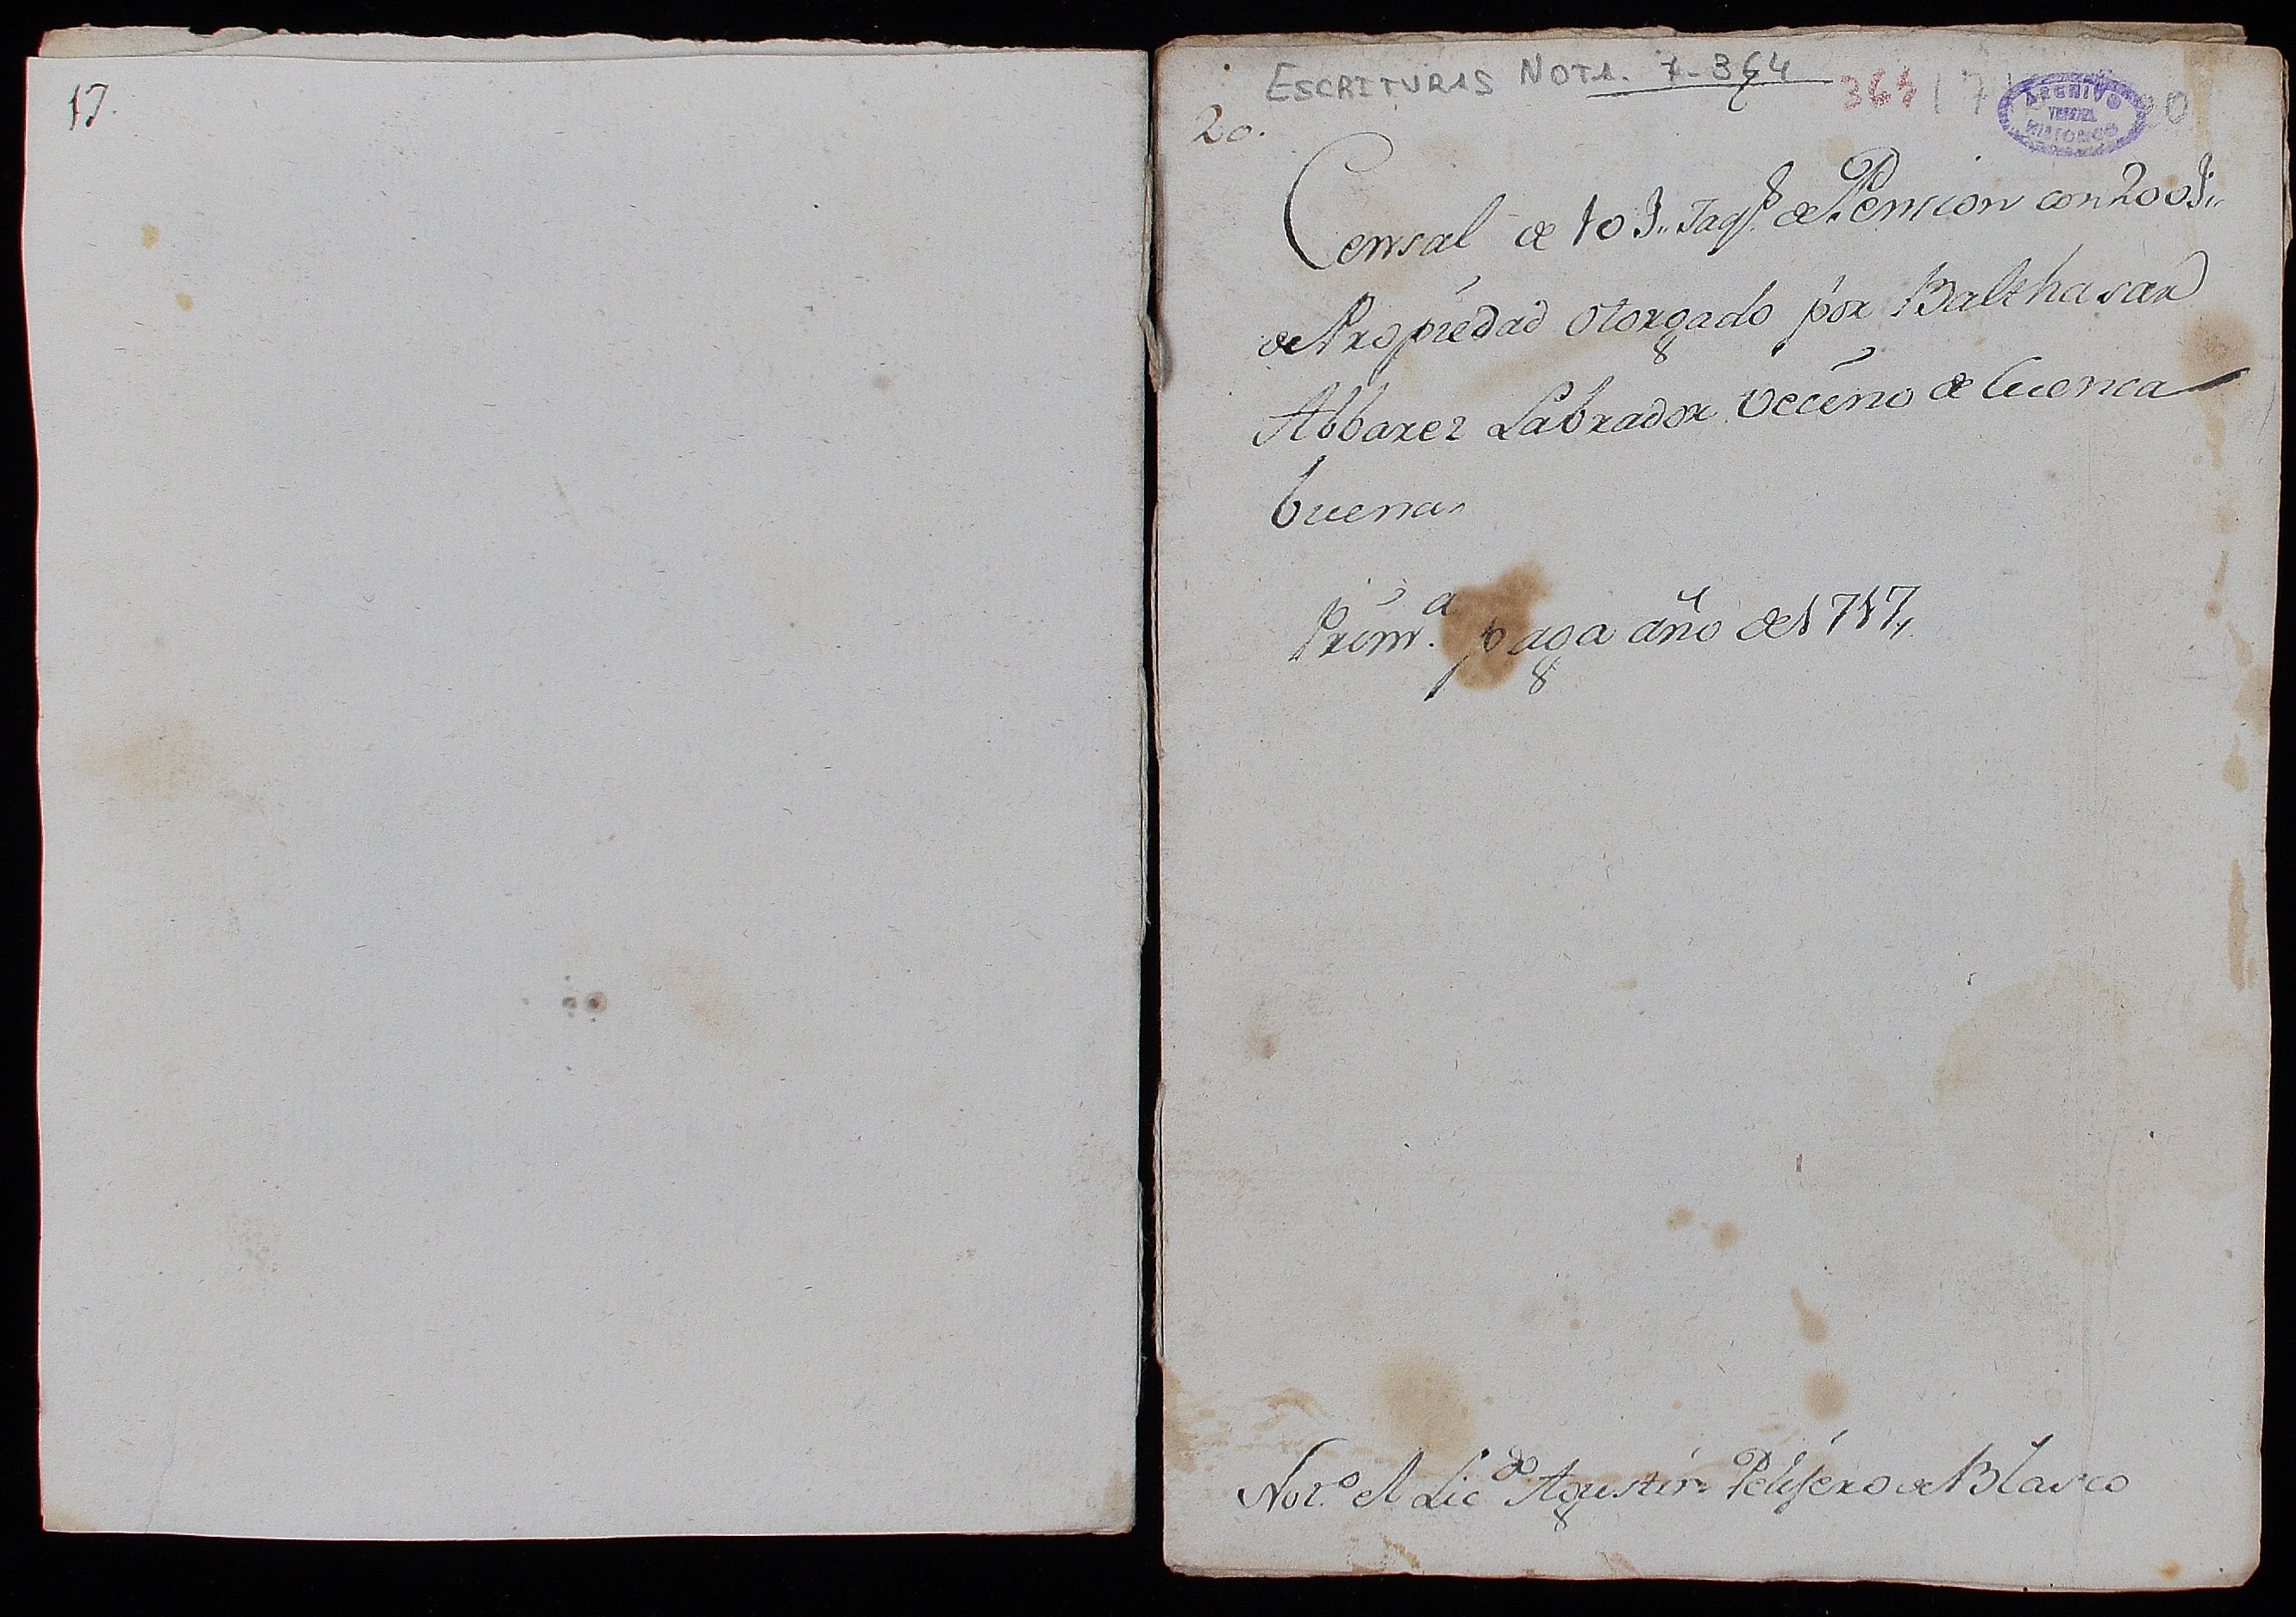 17.
ESCRITURAS NOTA. 7-364
364
20.
Censal de 10 L. Jaqs. de Pension con 200 L.
de Propiedad otorgado por Balthasar
Abbarez Labrador vecino de Cuenca
buena.
Prim.a paga año de 1717,
Not.o el Lic.do Agustin de Blasco